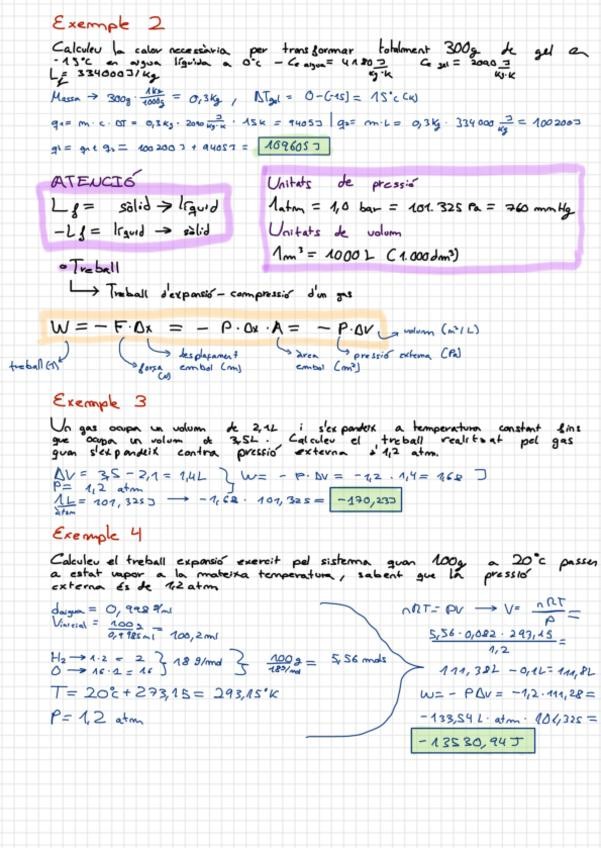 Exemple 2
Calculeu la calor necessària per transformar totalment 300g de gel a
-15°C en aigua líquida a 0°C - Ce aigua = 4180 J/kg·K Ce gel = 2090 J/kg·K
Lf = 334000 J/kg
Massa → 300g · 1kg/1000g = 0,3kg, ΔTgel = 0-(-15) = 15°C (K)
q1 = m · c · ΔT = 0,3kg · 2090 J/kg·K · 15K = 9405J | q2 = m·L = 0,3kg · 334000 J/kg = 100200J
q1 + q2 = 100200J + 9405J = 109605J
ATENCIÓ
Lf = sòlid → líquid
-Lf = líquid → sòlid
Unitats de pressió
1atm = 1,0 bar = 101.325 Pa = 760 mmHg
Unitats de volum
1m³ = 1000L (1.000dm³)
• Treball
↳ Treball d'expansió-compressió d'un gas
W = - F·Δx = - P·Δx·A = - P·ΔV → volum (m³/L)
treball (J)
força (N)
desplaçament embol (m)
àrea embol (m²)
pressió externa (Pa)
Exemple 3
Un gas ocupa un volum de 2,1L i s'expandeix a temperatura constant fins
que ocupa un volum de 3,5L. Calculeu el treball realitzat pel gas
quan s'expandeix contra pressió externa d'1,2 atm.
ΔV = 3,5 - 2,1 = 1,4L } W = - P·ΔV = -1,2 · 1,4 = 1,68 J
P = 1,2 atm
1L/atm = 101,325J → -1,68 · 101,325 = -170,23J
Exemple 4
Calculeu el treball expansió exercit pel sistema quan 100g a 20°C passen
a estat vapor a la mateixa temperatura, sabent que la pressió
externa és de 1,2 atm
daigua = 0,998 g/ml
Vinicial = 100g/0,998 g/ml = 100,2ml
H2 → 1·2 = 2
O → 16·1 = 16 } 18 g/mol } 100g/18g/mol = 5,56 mols
T = 20°C + 273,15 = 293,15°K
P = 1,2 atm
nRT = PV → V = nRT/P =
5,56·0,082·293,15/1,2 =
111,38L - 0,1L = 111,8L
W = - PΔV = -1,2·111,28 =
-133,54 L·atm · 101,325 =
-13530,94 J